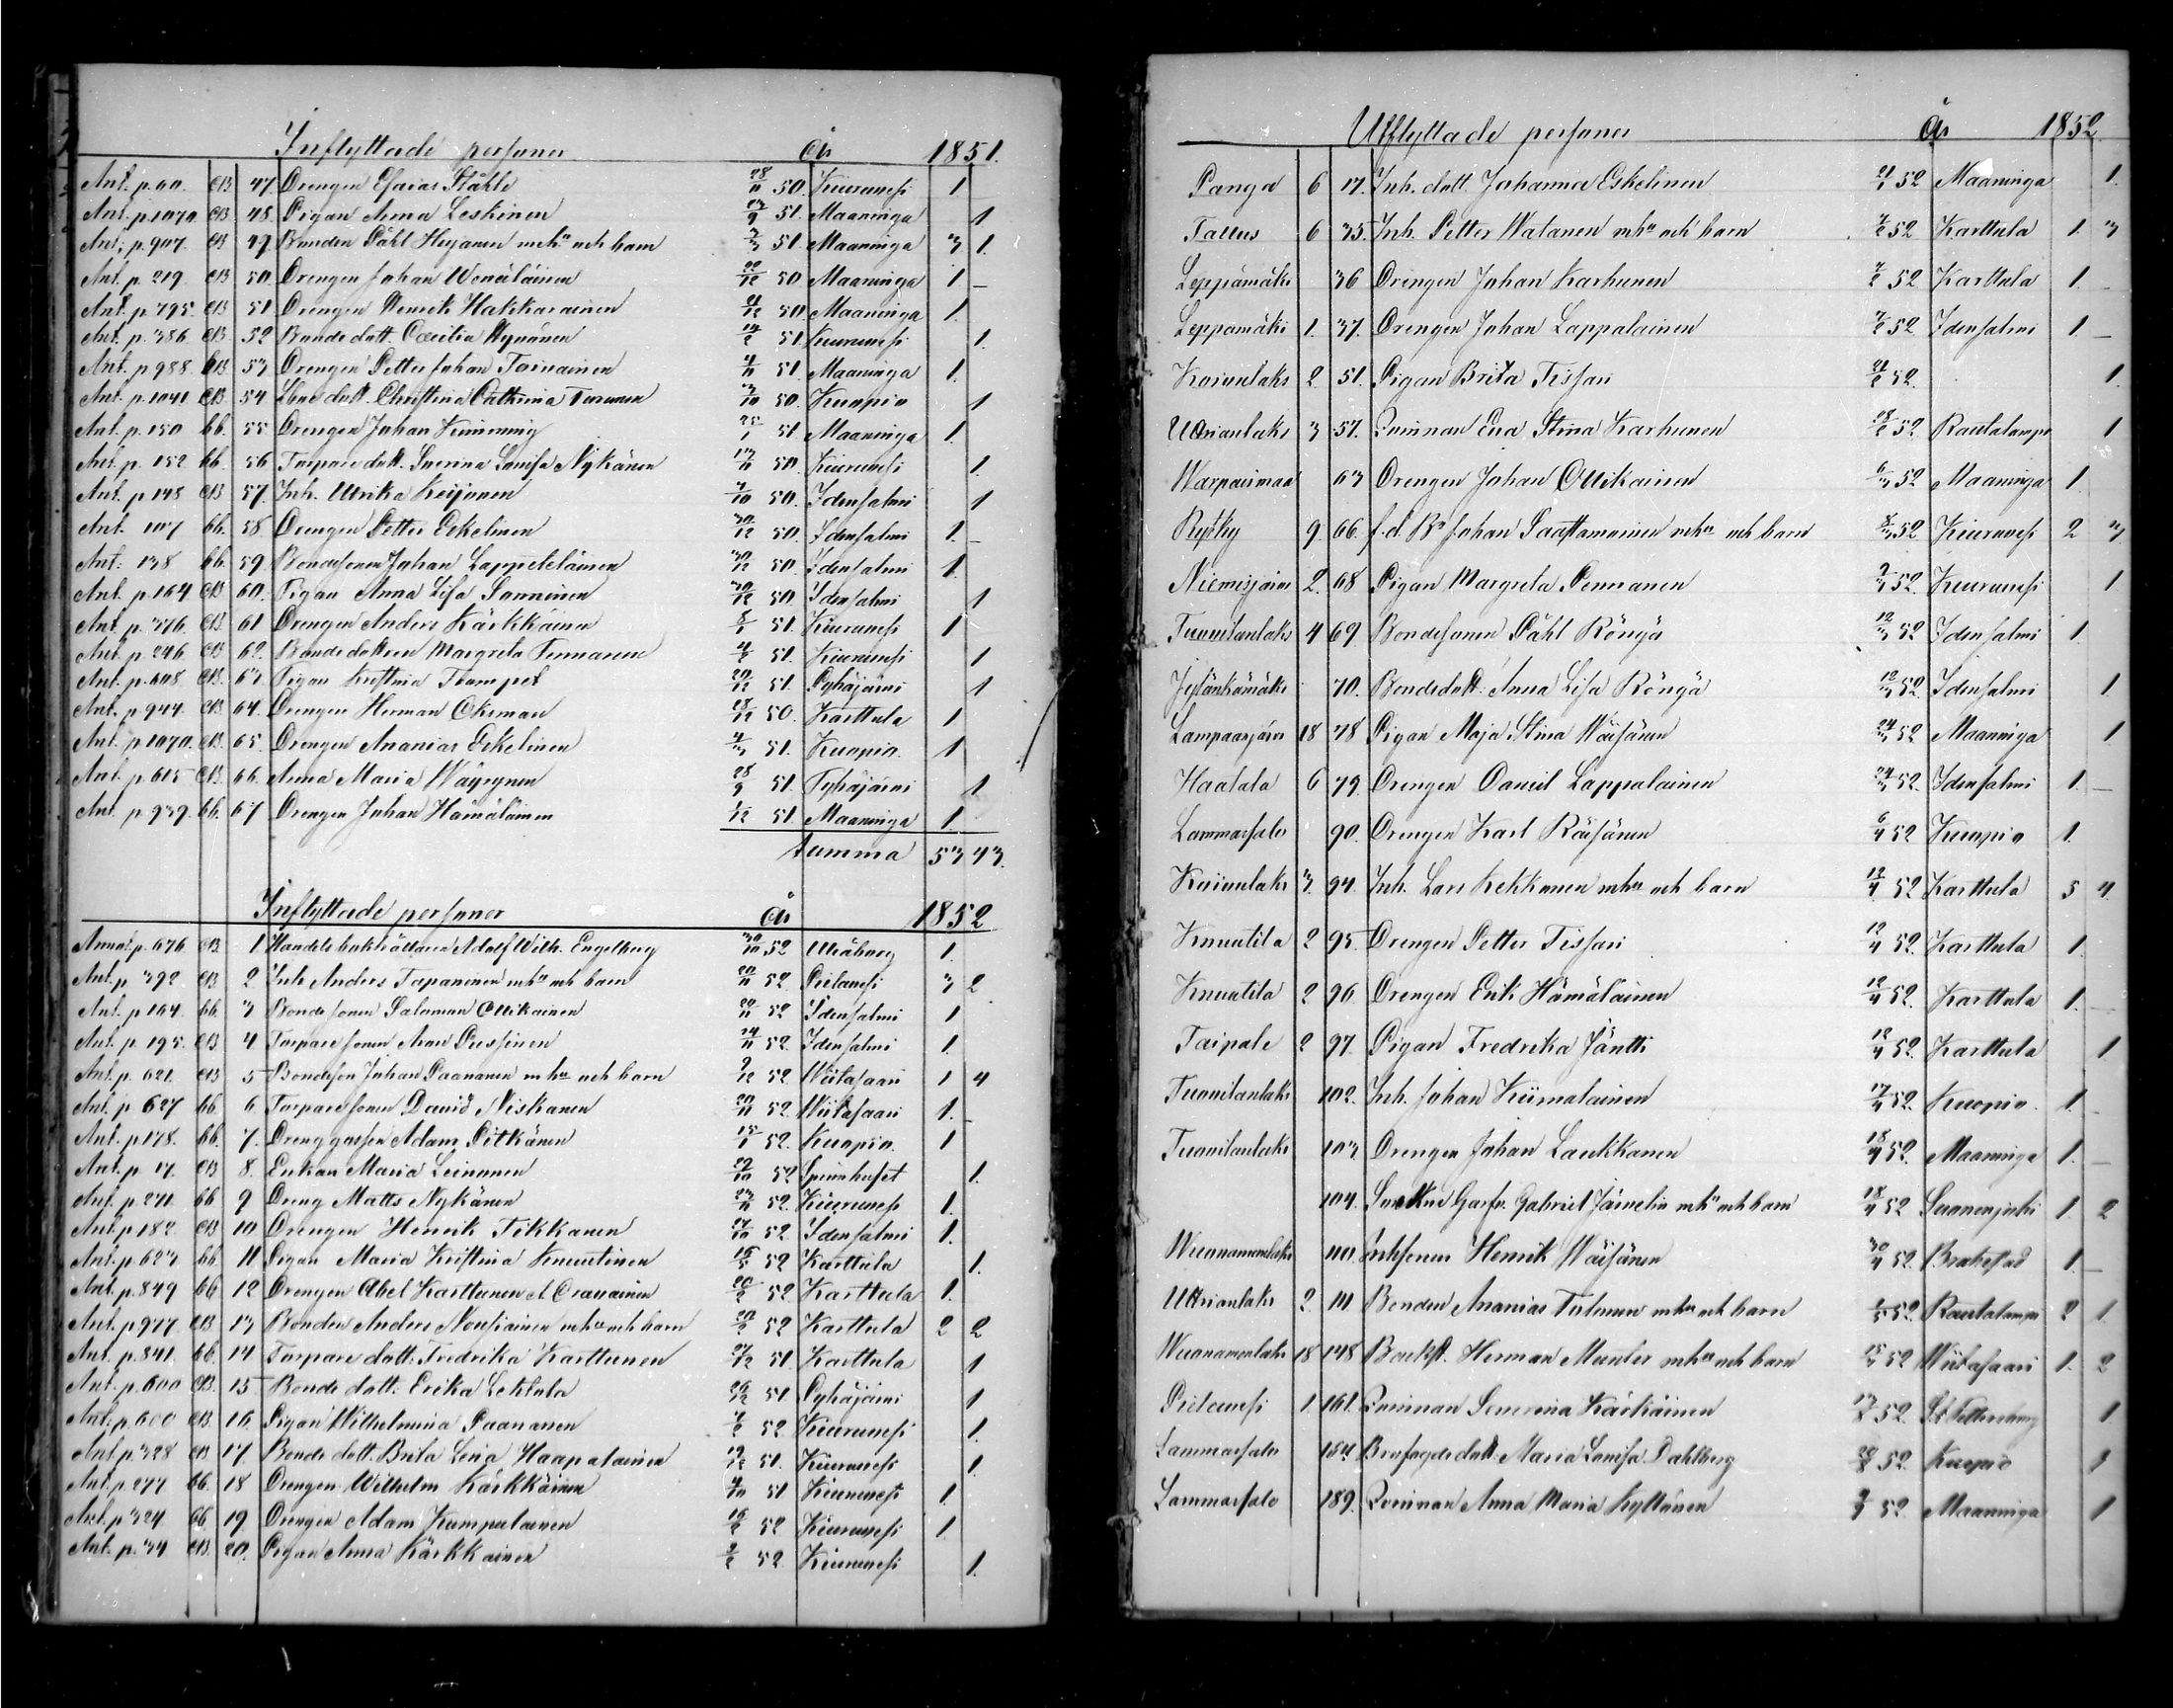 Inflyttade personer År 1851.
Ant. p. 60. 47. Drengen Esaias Ståhle 28/11 50. Kiuruvesi 1
Ant. p. 1070 48. Pigan Anna Leskinen 23/9 51. Maaninga 1
Ant. p. 907 49 Bonden Påhl Heyanen m hu och barn 3/3 51 Maaninga 3 1.
Ant. p. 219 50. Drengen Johan Wenäläinen 22/12 50 Maaninga 1 –
Ant. p. 795. 51 Drengen Henrik Hakkarainen 21/12 50 Maaninga 1.
Ant. p. 386 52 Bonde dott. Cæcilia Hynönen 14/2 51. Kiuruvesi 1.
Ant. p 988 53 Drengen Petter Johan Toivainen 4/11 51. Maaninga 1.
Ant. p. 1041 54 dott. Christina Cathrina Turunen 3/10 50. Kuopio 1
Ant. p. 150 bb. 55 Drengen Johan Kumming 25/1 51. Maaninga 1.
Ant. p. 152 bb. 56 Torpare dott. Severina Lovisa Nykänen 13/11 50. Kiuruvesi 1.
Ant. p 148 57. Inh. Ulrika Keijonen 7/10 50. Idensalmi 1
Ant. 107 bb. 58 Drengen Petter Eskelinen 30/12 50. Idensalmi 1. –
Ant. 138 bb. 59 Bondesonen Johan Lappeteläinen 30/12 50. Idensalmi 1.
Ant. p. 164 60. Pigan Anna Lisa Sonninen 30/12 50 Idensalmi 1
Ant. p. 376. 61 Drengen Anders Kärkkäinen 8/1 51. Kiuruvesi 1
Ant. p. 246 62. Bonde dottren Margreta Pennanen 4/2 51. Kiuruvesi 1
Ant. p. 608 63. Pigan Kristina Trampet 20/12 51. Pyhäjärvi 1
Ant. p. 944. 64. Drengen Herman Okrman 28/12 50. Karttula 1
Ant. p. 1070. 65. Drengen Ananias Eskelinen 4/3 51. Kuopio. 1
Ant. p. 615 66. Anna Maria Wäyrynen 28/9 51. Pyhäjärvi 1
Ant. p. 939. bb. 67 Drengen Johan Hämäläinen 1/12 51. Maaninga 1.
Summa 53 43.
Inflyttade personer År 1852
Annot. p. 676 1 Handelsbokhållaren Adolf Wilh. Engelberg 30/10 52 Uleåborg 1.
Ant. p. 392 2 Inh Anders Tapaninen m hu och barn 20/11 52. Pielavesi 3 2
Ant. p 164. bb. 3 Bonde sonen Salomon Ollikainen 20/11 52 Idensalmi 1
Ant. p. 195. 4 Torpare sonen Aron Pussinen 24/11 52. Idensalmi 1.
Ant. p. 621. 5 Bondeson Johan Paananen m hu och barn 9/12 52. Wiitasaari 1 4
Ant. p 627 bb. 6. Torparesonen David Niskanen 20/11 52. Wiitasaari 1. –
Ant. p 178. bb. 7. Dreng gossen Adam Pitkänen 15/1 52. Kuopio. 1
Ant. p. 17. 8. Enkan Maria Leinonen 29/10 52 Spinnhuset 1.
Ant. p. 271. bb 9 Dreng Matts Nykänen 23/11 52. Kiuruvesi 1.
Ant. p 182. 10 Drengen Henrik Tikkanen 27/10 52 Idensalmi 1.
Ant. p. 623. bb. 11 Pigan Maria Kristina Knuutinen 15/5 52 Karttula 1.
Ant. p. 849 bb 12 Drengen Abel Karttunen 20/2 52 Karttula 1.
Ant. p 977 13 Bonden Anders Nousiainen m hu och barn 20/2 52 Karttula 2 2
Ant. p. 841. bb. 14 Torpare dott. Fredrika Karttunen 27/12 51. Karttula 1
Ant. p. 600 15 Bonde dott. Erika Lehtola 26/12 51. Pyhäjärvi 1
Ant. p. 600 16. Pigan Wilhelmina Paananen 7/2 52 Kiuruvesi 1.
Ant. p. 328 17. Bonde dott. Brita Lena Haapalainen 19/12 51. Kiuruvesi 1.
Ant. p. 277 bb. 18 Drengen Wilhelm Kärkkäinen 4/10 51 Kiuruvesi 1.
Ant. p 324 bb 19 Drengen Adam Kumpulainen 19/2 52 Kiuruvesi 1.
Ant. p. 34 20. Pigan Anna Kärkkainen 9/2 52. Kiuruvesi 1.
Utflyttade personer År 1852.
Panga 6 17. Inh. dott. Johanna Eskelinen 21/1 52 Maaninga 1.
Tallus 6 35. Inh. Petter Watanen m hu och barn 7/2 52 Karttula 1. 3
Leppämäki 36 Drengen Johan Karhunen 7/2 52 Karttula 1. –
Leppämäki 1. 37. Drengen Johan Lappalainen 7/2 52 Idensalmi 1. –
Koivulaks 2 51. Pigan Brita Tissari 21/2 52. 1.
Utrianlaks 3 57. Qvinnan Eva Stina Karhunen 28/2 52 Rautalampi 1
Warpaismaa 63 Drengen Johan Ollikainen 6/3 52 Maaninga 1.
Rytky 9. 66. f.d. Bn Johan Saastamoinen m hu och barn 8/3 52. Kiuruvesi 2 3.
Niemisjärvi 2. 68 Pigan Margreta Pennanen 9/3 52. Kiuruvesi 1.
Tuovilanlaks 4 69 Bondesonen Påhl Röngä 12/3 52 Idensalmi 1.
Jylänkämäki 70. Bondedott. Anna Lisa Röngä 12/3 52. Idensalmi 1
Lampaanjärvi 18 78 Pigan Maja Stina Wäisänen 24/3 52 Maaninga 1
Haatala 6 79. Drengen Daniel Lappalainen 24/3 52. Idensalmi 1. –
Lammassalo 90. Drengen Karl Räisänen 6/4 52 Kuopio 1.
Koivulaks 3. 94. Inh. Lars Kekkonen m hu och barn 12/4 52 Karttula 5 4.
Knuutila 2 95 Drengen Petter Tissari 12/4 52. Karttula 1.
Knuutila 2 96 Drengen Erik Hämäläinen 12/4 52. Karttula 1. –
Taipale 2 97. Pigan Fredrika Jäntti 12/4 52. Karttula 1
Tuovilanlaks 102. Inh. Johan Kiimalainen 17/4 52. Kuopio. 1. –
Tuovilanlaks 103. Drengen Johan Laukkanen 18/4 52. Maaninga 1. –
104. Garfv. Gabriel Järnelin m hu och barn 18/4 52 Suonenjoki 1. 2
Wuonamonlaks 110. Inhsonen Henrik Wäisänen 30/4 52. Brahestad 1. –
Utrianlaks 2. 111. Bonden Ananias Tulonen m hu och barn 52. Rautalampi 2 1.
Wuonamonlaks 18 148 Backst. Herman Munter m hu och barn 52 Wiitasaari 1. 2
Pielavesi 1. 161. Qvinnan Severina Kärkäinen 52. St Pettersburg 1
Lammassalo 154. Brofogde dott. Maria Lovisa Dahlberg 52. Kuopio 1
Lammassalo 189. Qvinnan Anna Maria Kyllönen 52. Maaninga 1